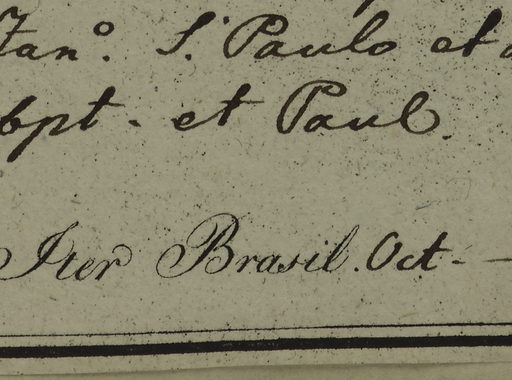 Jano. S. Paulo et
bpt. et Paul.
Iter Brasil. Oct -